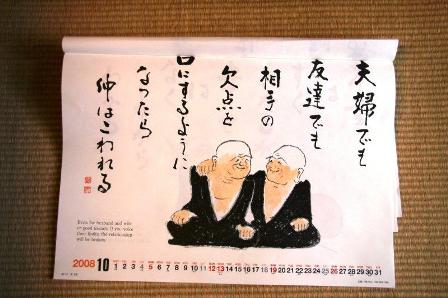 夫婦でも
友達でも
相手の
欠点を
口にするように
なったら
仲はこわれる
Even for husband and wife
or good friends, if you voice
their faults, the relationship
will be broken.
2008 10
1 2 3 4 5 6 7 8 9 10 11 12 13 14 15 16 17 18 19 20 21 22 23 24 25 26 27 28 29 30 31